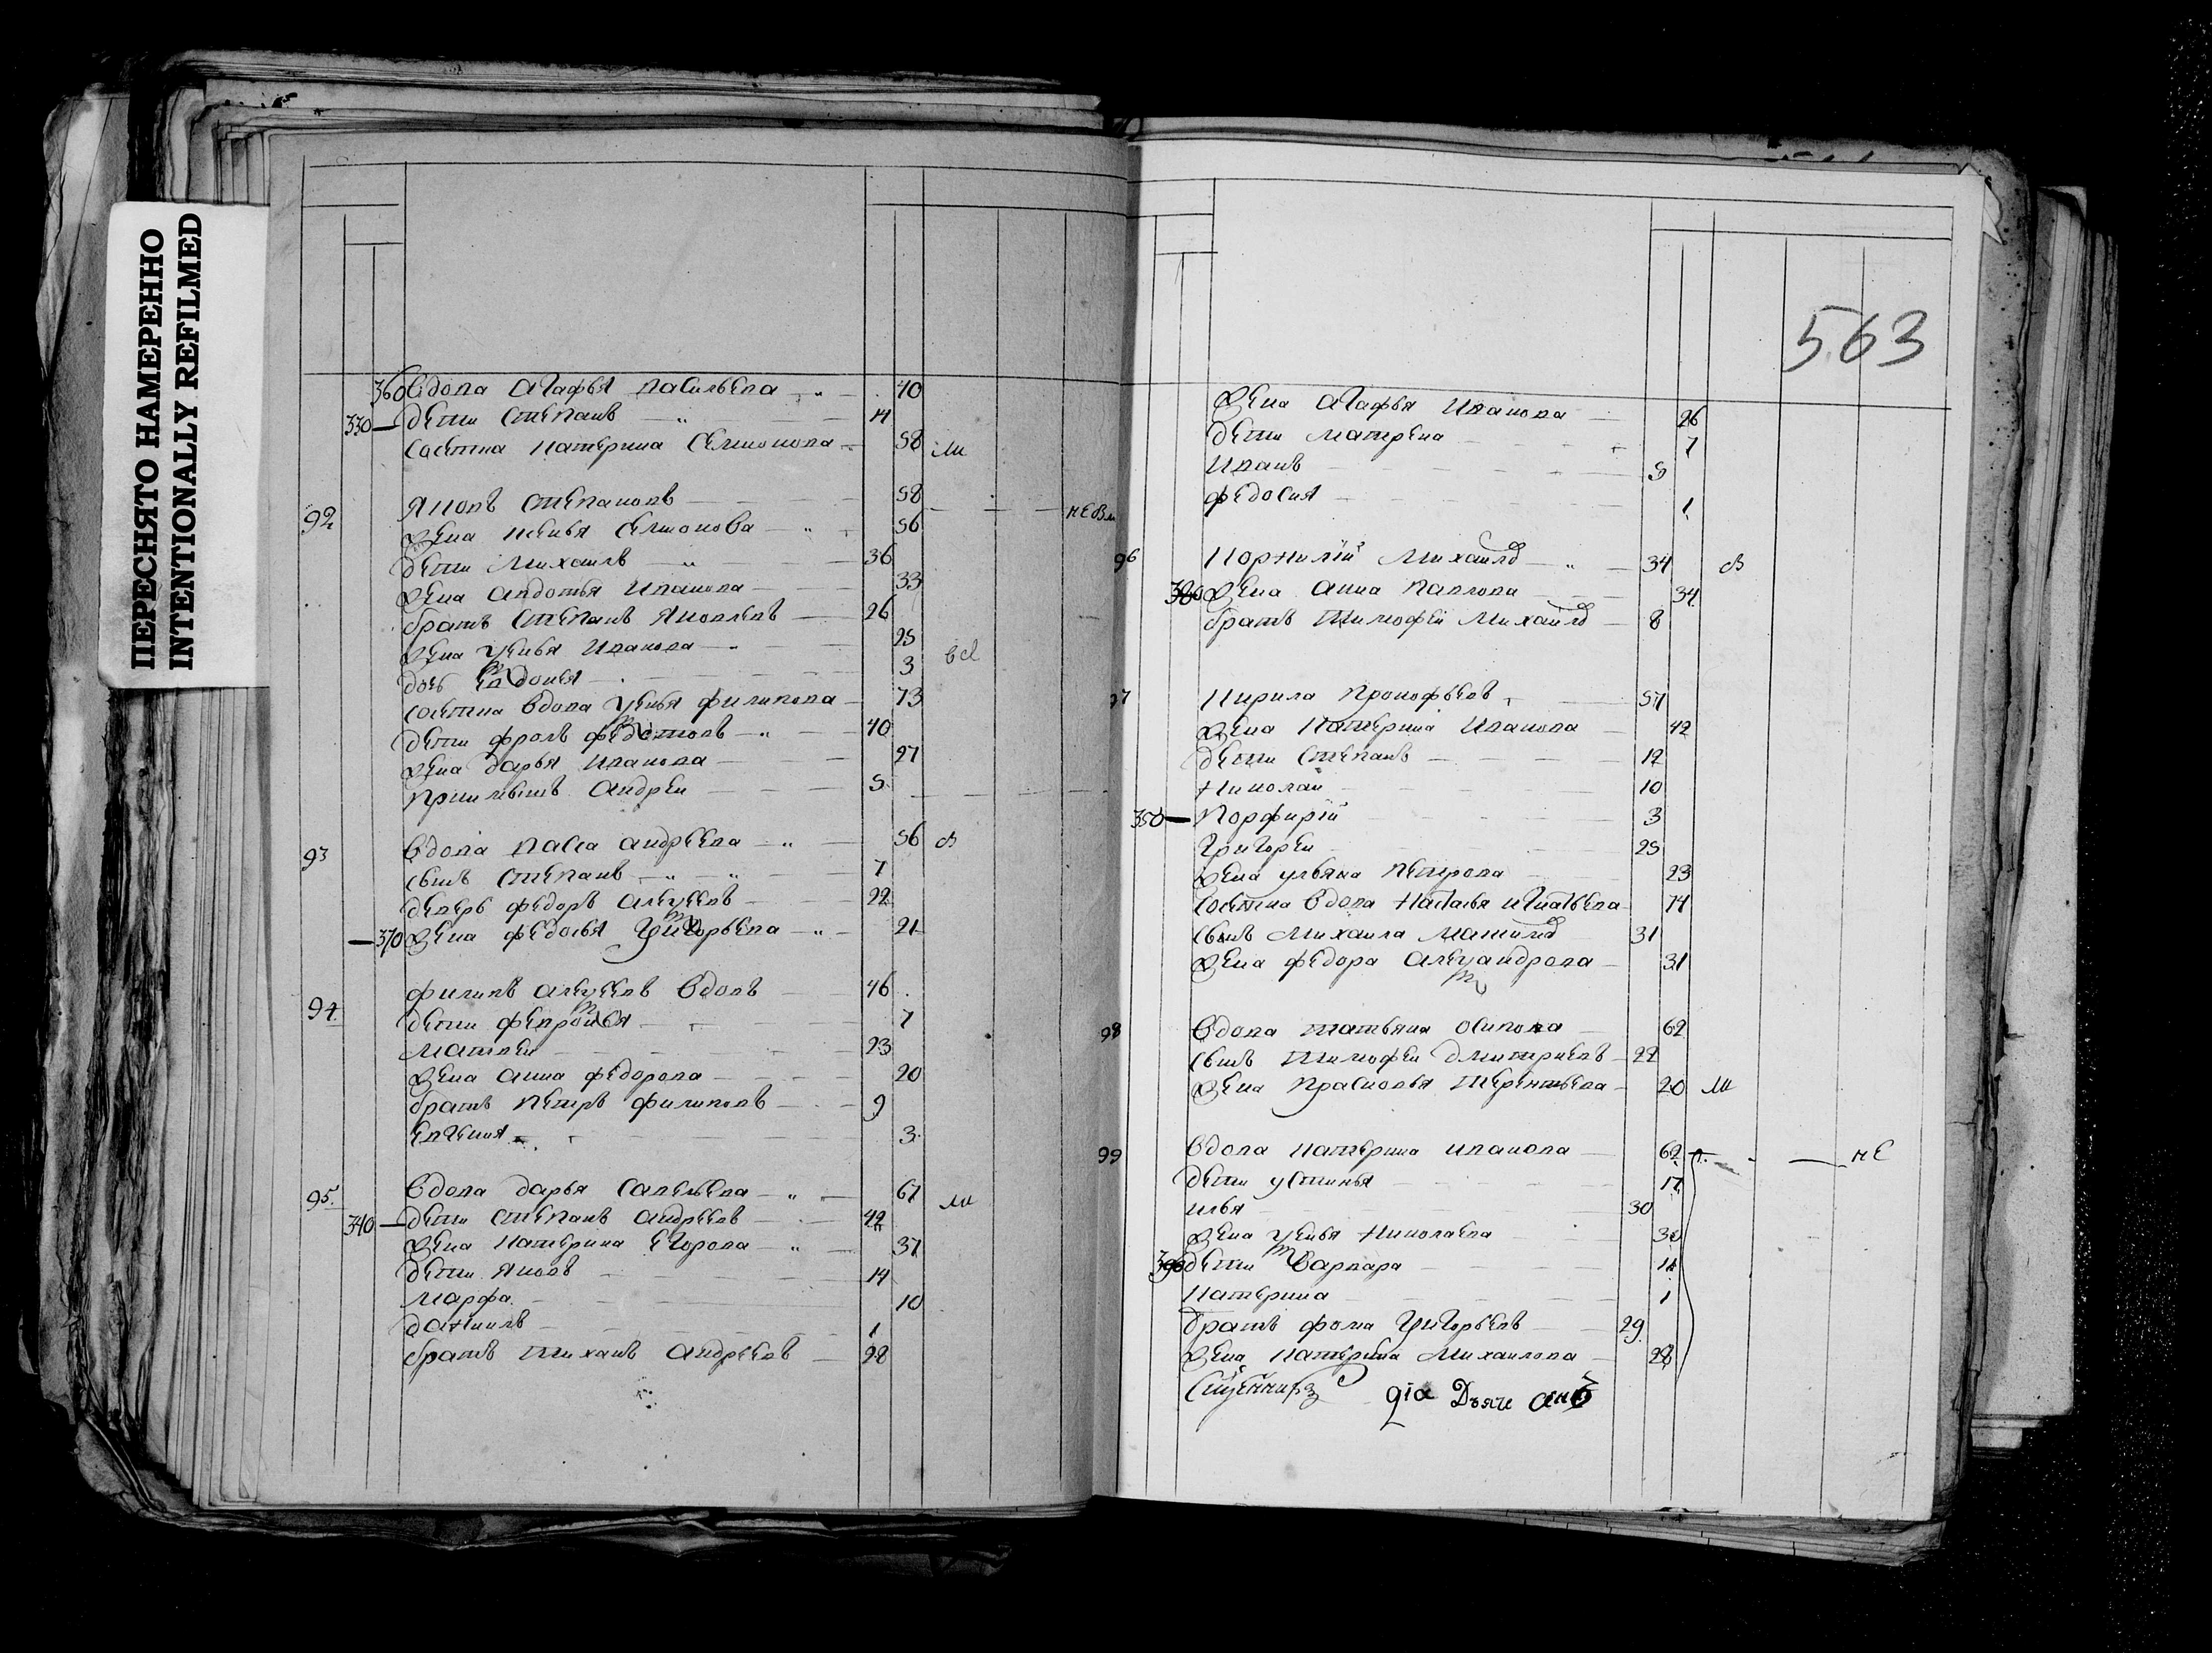 ПЕРЕСНЯТО НАМЕРЕННО
INTENTIONALLY REFILMED
360 вдова агафья васильева 40
330 дети степанъ 14
состина катерина семионова 58 ли
92 яковъ степановъ 58
жена ксенья семионова 56
дети михаилъ 36
жена авдотья иванова 33
братъ степанъ яковлевъ 26
жена иванова 25
дочь 3
вдова филипова 73
дети фролъ 40
жена дарья иванова 27
андреи 5
93 вдова васса андреева 56
сынъ степанъ 7
деверь федоръ алеѯеевъ 22
370 жена федосья григорьева 21
94 филипъ алеѯеевъ вдовъ 46
дети 7
матвеи 23
жена анна федорова 20
братъ петръ филиповъ 9
евгения 3
95. вдова дарья савельева 67 ли
340 дети степанъ андреевъ 42
жена катерина егорова 37
дети яковъ 14
марфа 10
данилъ 1
братъ тиханъ андреевъ 28
563
жена агафья иванова 26
дети матрена 7
иванъ 5
федосия 1
96 корнилїй михаилов 34
380 жена анна павлова 34
братъ тимофеи михаилов 8
97 кирила прокофьевъ 57
жена катерина иванова 42
дети степанъ 12
николаи 10
350 порфирїй 3
григореи 25
жена ульяна петрова 23
вдова наталья игнатьева 74
сынъ михаила 31
жена федора алеѯандрова 31
98 вдова татьяна осипова 62
сынъ тимофеи дмитриевъ 22
жена прасковья терентьева 20 ли
99 вдова катерина иванова 62 не
дети устинья 17
илья 30
жена николаева 30
390 дети варвара 11
катерина 1
братъ фома григорьевъ 29
жена катерина михаилова 28